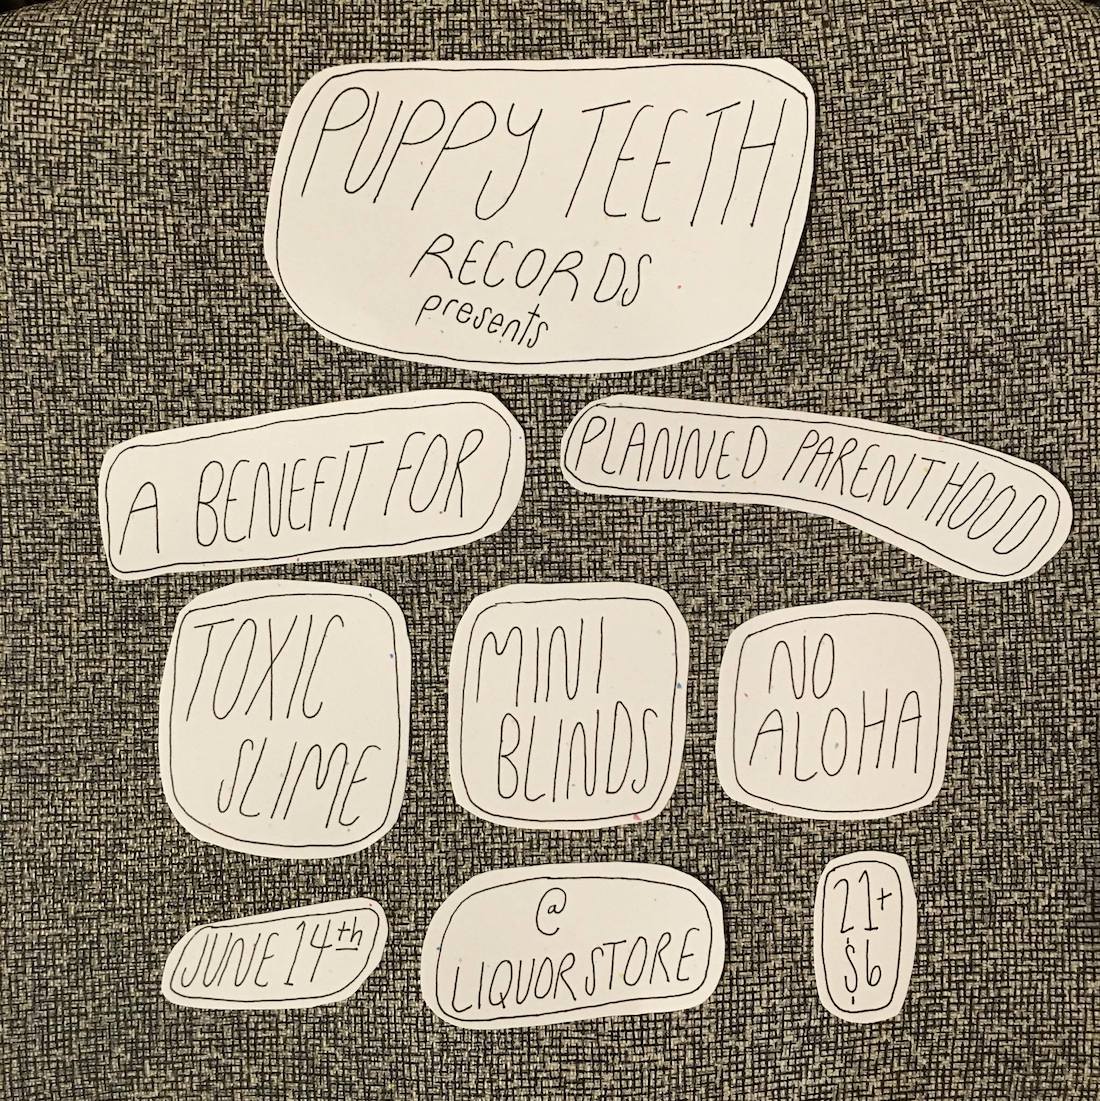 PUPPY TEETH
RECORDS
presents
A BENEFIT FOR
PLANNED PARENTHOOD
TOXIC
SLIME
MINI
BLINDS
NO
ALOHA
JUNE 14th
@
LIQUOR STORE
21+
$6